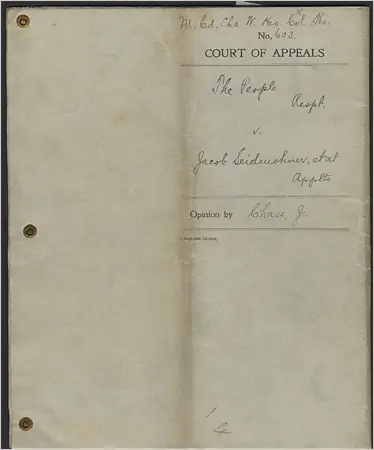 No. 603.
COURT OF APPEALS
The People
Respt.
v.
Jacob Seidenshner, et al
Applts
Opinion by Chase, J.